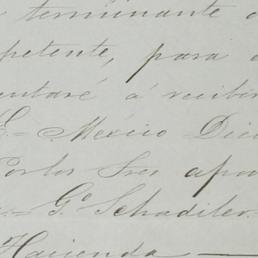 terminante
petente, para
entaré á recibir
E.= México Dic
Por los Sres apo
= G.º Schadtler
Hacienda